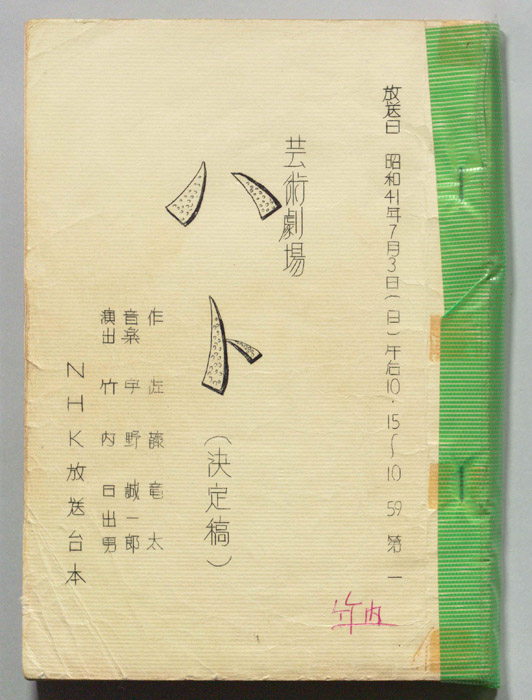 放送日 昭和41年7月3日(日)午后10.15〜10 59 第一
芸術劇場
ハト
(決定稿)
作 佐藤竜太
音楽 宇野誠一郎
演出 竹内日出男
NHK放送台本
竹内